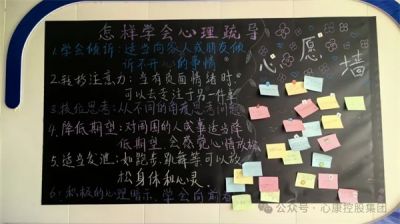 怎样学会心理疏导
1.学会倾诉:适当向家人或朋友倾
诉不开心的事情
2.转移注意力:当有负面情绪时
可以去专注于另一件事
3.换位思考:从不同的角度思考问题
4.降低期望:对周围的人或事适当降
低期望,会感觉心情放松
5.适当发泄:如跑步、跳舞等可以放
松身体和心灵
6.积极的心理暗示,学会向前看
心愿墙
公众号·心康控股集团